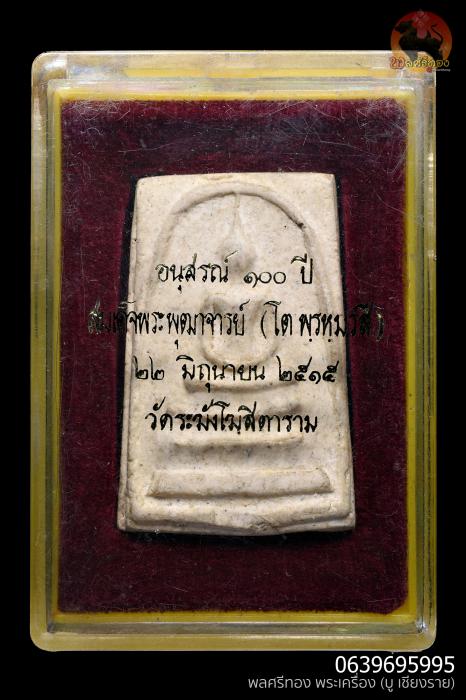 พลศรีทอง
อนุสรณ์ ๑๐๐ ปี
สมเด็จพระพุฒาจารย์ (โต พฺรหฺมรํสี)
๒๒ มิถุนายน ๒๕๑๕
วัดระฆังโฆสิตาราม
0639695995
พลศรีทอง พระเครื่อง (บู เชียงราย)